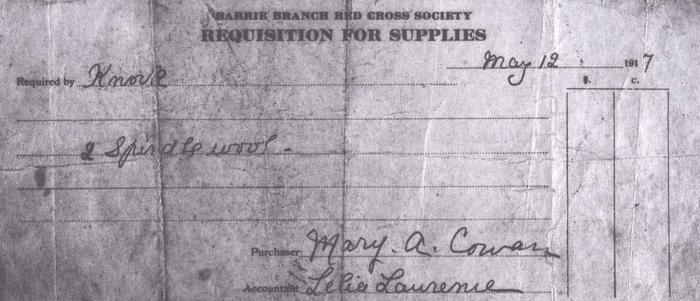 BARRIE BRANCH RED CROSS SOCIETY
REQUISITION FOR SUPPLIES
May 12 1917
Required by Knox
$. c.
2 Spindle wool -
Purchaser Mary. A. Cowan
Accountant Lelia Laurence